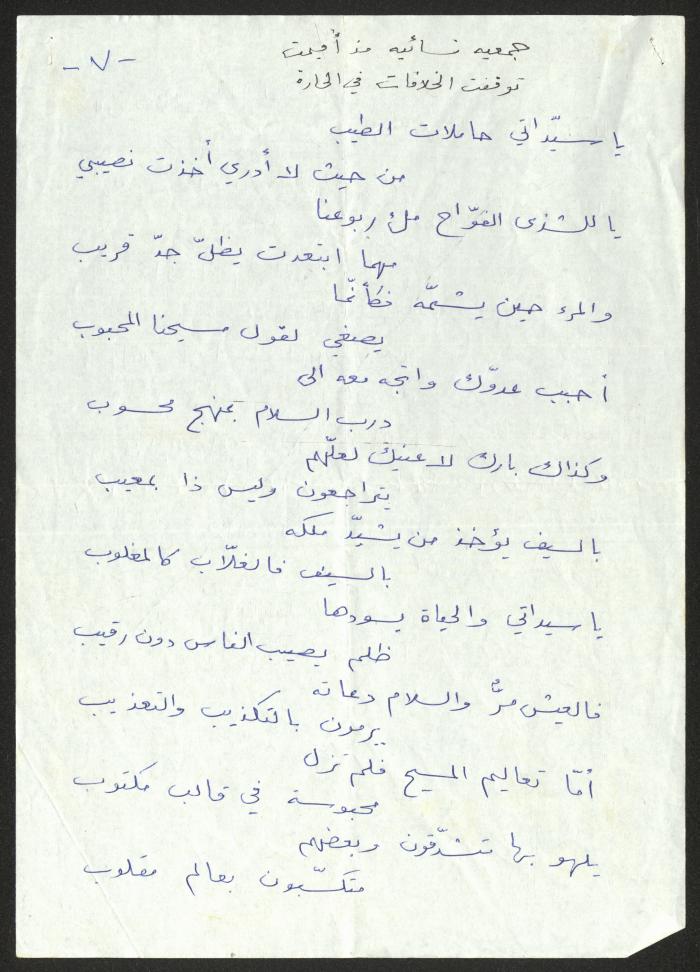 -٧-
جمعيه نسائيه مذ أقيمت
توقفت الخلافات في الحارة
يا سيّداتي حاملات الطيب
من حيث لا أدري أخذت نصيبي
يا للشذى الفوّاح ملء ربوعنا
مهما ابتعدت يظلّ جدّ قريب
والمرء حين يشمّه فكأنّما
يصغي لقول مسيحنا المحبوب
أحبب عدوّك واتجه معه الى
درب السلام بمنهج محسوب
وكذاك بارك لاعنيك لعلّهم
يتراجعون وليس ذا بمعيب
بالسيف يؤخذ من يشيّد ملكه
بالسيف فالغلّاب كالمغلوب
يا سيداتي والحياة يسودها
ظلم يصيب الناس دون رقيب
فالعيش مرٌّ والسلام دعاته
يرمون بالتكذيب والتعذيب
أمّا تعاليم المسيح فلم تزل
محبوسة في قالب مكتوب
يلهو بها متشدّقون وبعضهم
متكسّبون بعالم مقلوب